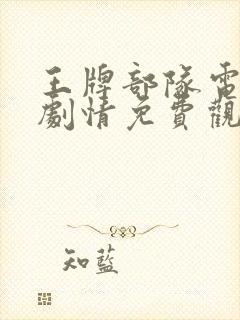 王牌部隊電
劇情免費觀
知藍